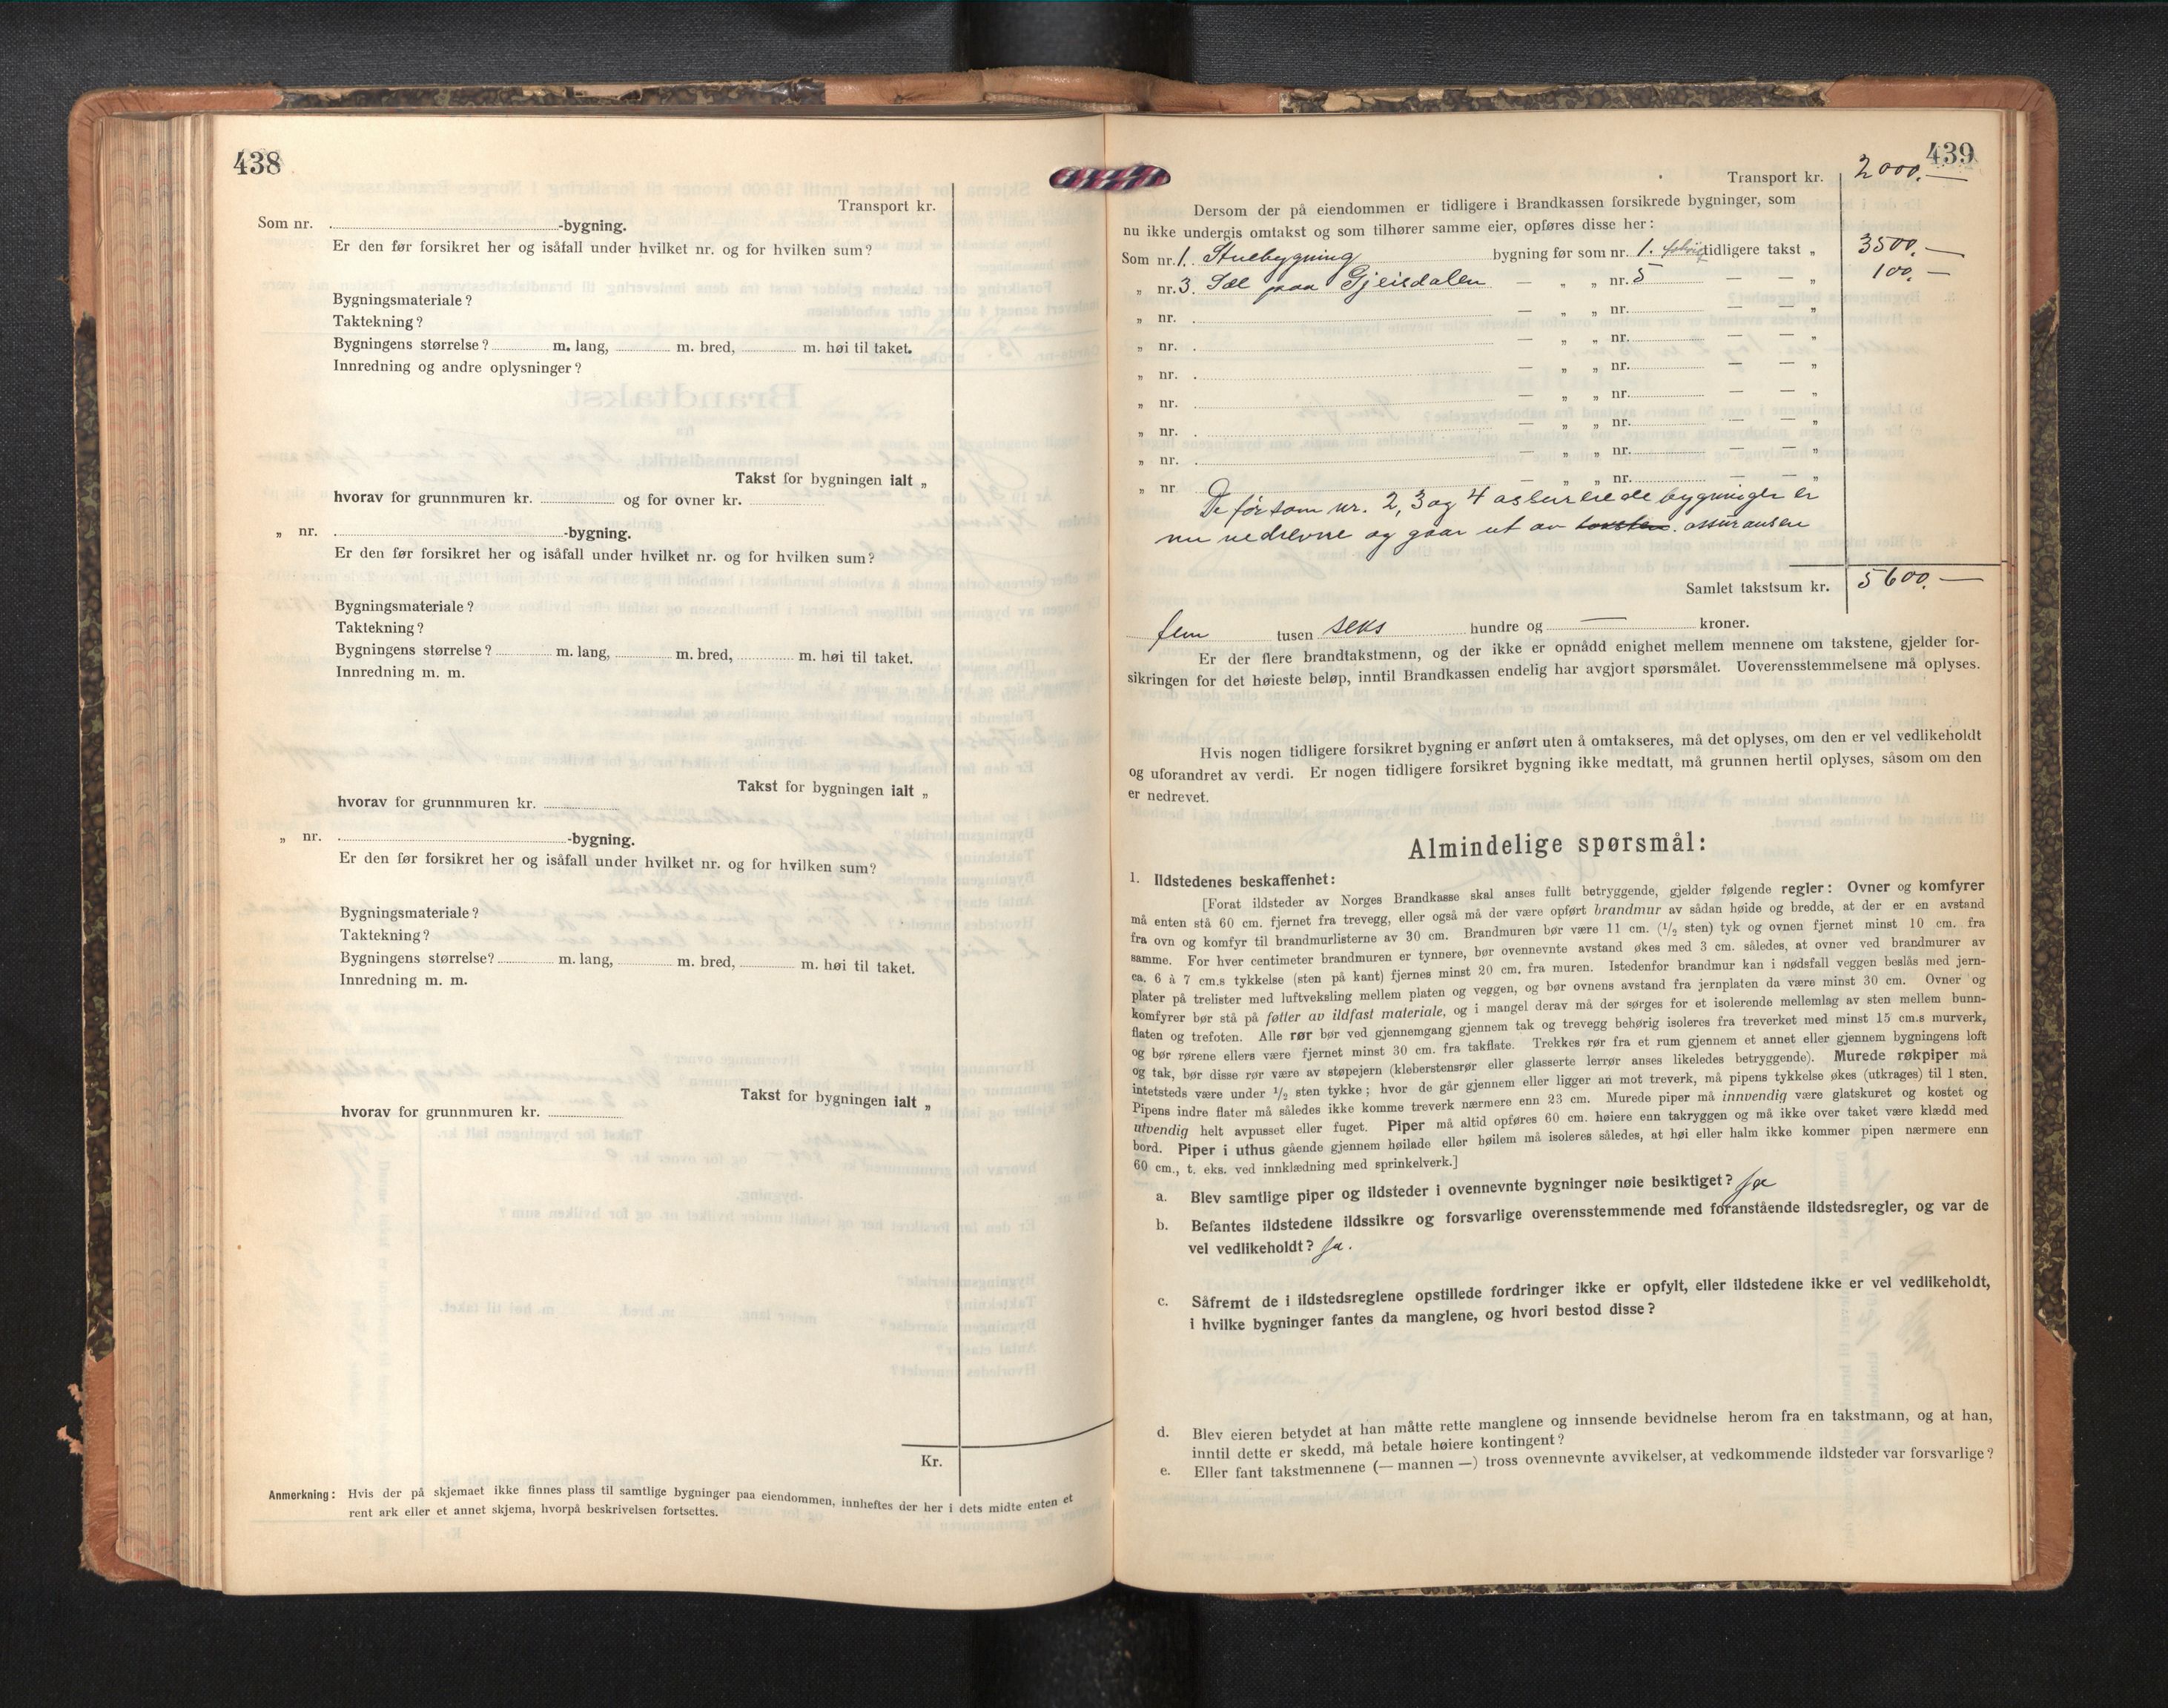 438
Transport kr.
Som nr. -bygning.
Er den før forsikret her og isåfall under hvilket nr. og for hvilken sum?
Bygningsmateriale?
Taktekning?
Bygningens størrelse? m. lang, m. bred, m. høi til taket.
Innredning og andre oplysninger?
Takst for bygningen ialt „
hvorav for grunnmuren kr. og for ovner kr.
„ nr. -bygning.
Er den før forsikret her og isåfall under hvilket nr. og for hvilken sum?
Bygningsmateriale?
Taktekning?
Bygningens størrelse? m. lang, m. bred, m. høi til taket.
Innredning m. m.
Takst for bygningen ialt „
hvorav for grunnmuren kr.
„ nr. -bygning.
Er den før forsikret her og isåfall under hvilket nr. og for hvilken sum?
Bygningsmateriale?
Taktekning?
Bygningens størrelse? m. lang, m. bred, m. høi til taket.
Innredning m. m.
Takst for bygningen ialt „
hvorav for grunnmuren kr.
Kr.
Anmerkning: Hvis der på skjemaet ikke finnes plass til samtlige bygninger paa eiendommen, innheftes der her i dets midte enten et
rent ark eller et annet skjema, hvorpå beskrivelsen fortsettes.
439
Transport kr. 2000.—
Dersom der på eiendommen er tidligere i Brandkassen forsikrede bygninger, som
nu ikke undergis omtakst og som tilhører samme eier, opføres disse her:
Som nr. 1. Stuebygning bygning før som nr. 1. tidligere takst „ 3500.—
„ nr. 3. Sæl paa Gjeisdalen — „ „ nr. 5 — — „ 100.—
„ nr. — „ „ nr. — — „
„ nr. — „ „ nr. — — „
„ nr. — „ „ nr. — — „
„ nr. — „ „ nr. — — „
„ nr. — „ „ nr. — — „
„ nr. — „ „ nr. — — „
„ nr — „ „ nr. — — „
De før som nr. 2, 3 og 4 assurerede bygninger er
nu nedrevne og gaar ut av taksten. assuransen
Samlet takstsum kr. 5600.—
fem tusen seks hundre og — kroner.
Er der flere brandtakstmenn, og der ikke er opnådd enighet mellem mennene om takstene, gjelder for-
sikringen for det høieste beløp, inntil Brandkassen endelig har avgjort spørsmålet. Uoverensstemmelsene må oplyses.
Hvis nogen tidligere forsikret bygning er anført uten å omtakseres, må det oplyses, om den er vel vedlikeholdt
og uforandret av verdi. Er nogen tidligere forsikret bygning ikke medtatt, må grunnen hertil oplyses, såsom om den
er nedrevet.
Almindelige spørsmål:
1. Ildstedenes beskaffenhet:
[Forat ildsteder av Norges Brandkasse skal anses fullt betryggende, gjelder følgende regler: Ovner og komfyrer
må enten stå 60 cm. fjernet fra trevegg, eller også må der være opført brandmur av sådan høide og bredde, at der er en avstand
fra ovn og komfyr til brandmurlisterne av 30 cm. Brandmuren bør være 11 cm. (1/2 sten) tyk og ovnen fjernet minst 10 cm. fra
samme. For hver centimeter brandmuren er tynnere, bør ovennevnte avstand økes med 3 cm. således, at ovner ved brandmurer av
ca. 6 à 7 cm.s tykkelse (sten på kant) fjernes minst 20 cm. fra muren. Istedenfor brandmur kan i nødsfall veggen beslås med jern-
plater på trelister med luftveksling mellem platen og veggen, og bør ovnens avstand fra jernplaten da være minst 30 cm. Ovner og
komfyrer bør stå på føtter av ildfast materiale, og i mangel derav må der sørges for et isolerende mellemlag av sten mellem bunn-
flaten og trefoten. Alle rør bør ved gjennemgang gjennem tak og trevegg behørig isoleres fra treverket med minst 15 cm.s murverk,
og bør rørene ellers være fjernet minst 30 cm. fra takflate. Trekkes rør fra et rum gjennem et annet eller gjennem bygningens loft
og tak, bør disse rør være av støpejern (kleberstensrør eller glasserte lerrør anses likeledes betryggende). Murede røkpiper må
intetsteds være under 1/2 sten tykke; hvor de går gjennem eller ligger an mot treverk, må pipens tykkelse økes (utkrages) til 1 sten.
Pipens indre flater må således ikke komme treverk nærmere enn 23 cm. Murede piper må innvendig være glatskuret og kostet og
utvendig helt avpusset eller fuget. Piper må altid opføres 60 cm. høiere enn takryggen og må ikke over taket være klædd med
bord. Piper i uthus gående gjennem høilade eller høilem må isoleres således, at høi eller halm ikke kommer pipen nærmere enn
60 cm., t. eks. ved innklædning med sprinkelverk.]
a. Blev samtlige piper og ildsteder i ovennevnte bygninger nøie besiktiget? Ja
b. Befantes ildstedene ildssikre og forsvarlige overensstemmende med foranstående ildstedsregler, og var de
vel vedlikeholdt? Ja.
c. Såfremt de i ildstedsreglene opstillede fordringer ikke er opfylt, eller ildstedene ikke er vel vedlikeholdt,
i hvilke bygninger fantes da manglene, og hvori bestod disse?
d. Blev eieren betydet at han måtte rette manglene og innsende bevidnelse herom fra en takstmann, og at han,
inntil dette er skedd, må betale høiere kontingent?
e. Eller fant takstmennene (— mannen —) tross ovennevnte avvikelser, at vedkommende ildsteder var forsvarlige?